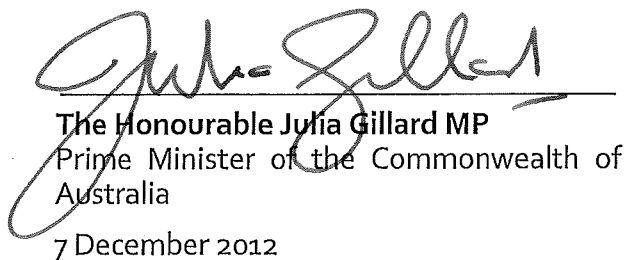 Julia Gillard
The Honourable Julia Gillard MP
Prime Minister of the Commonwealth of
Australia
7 December 2012